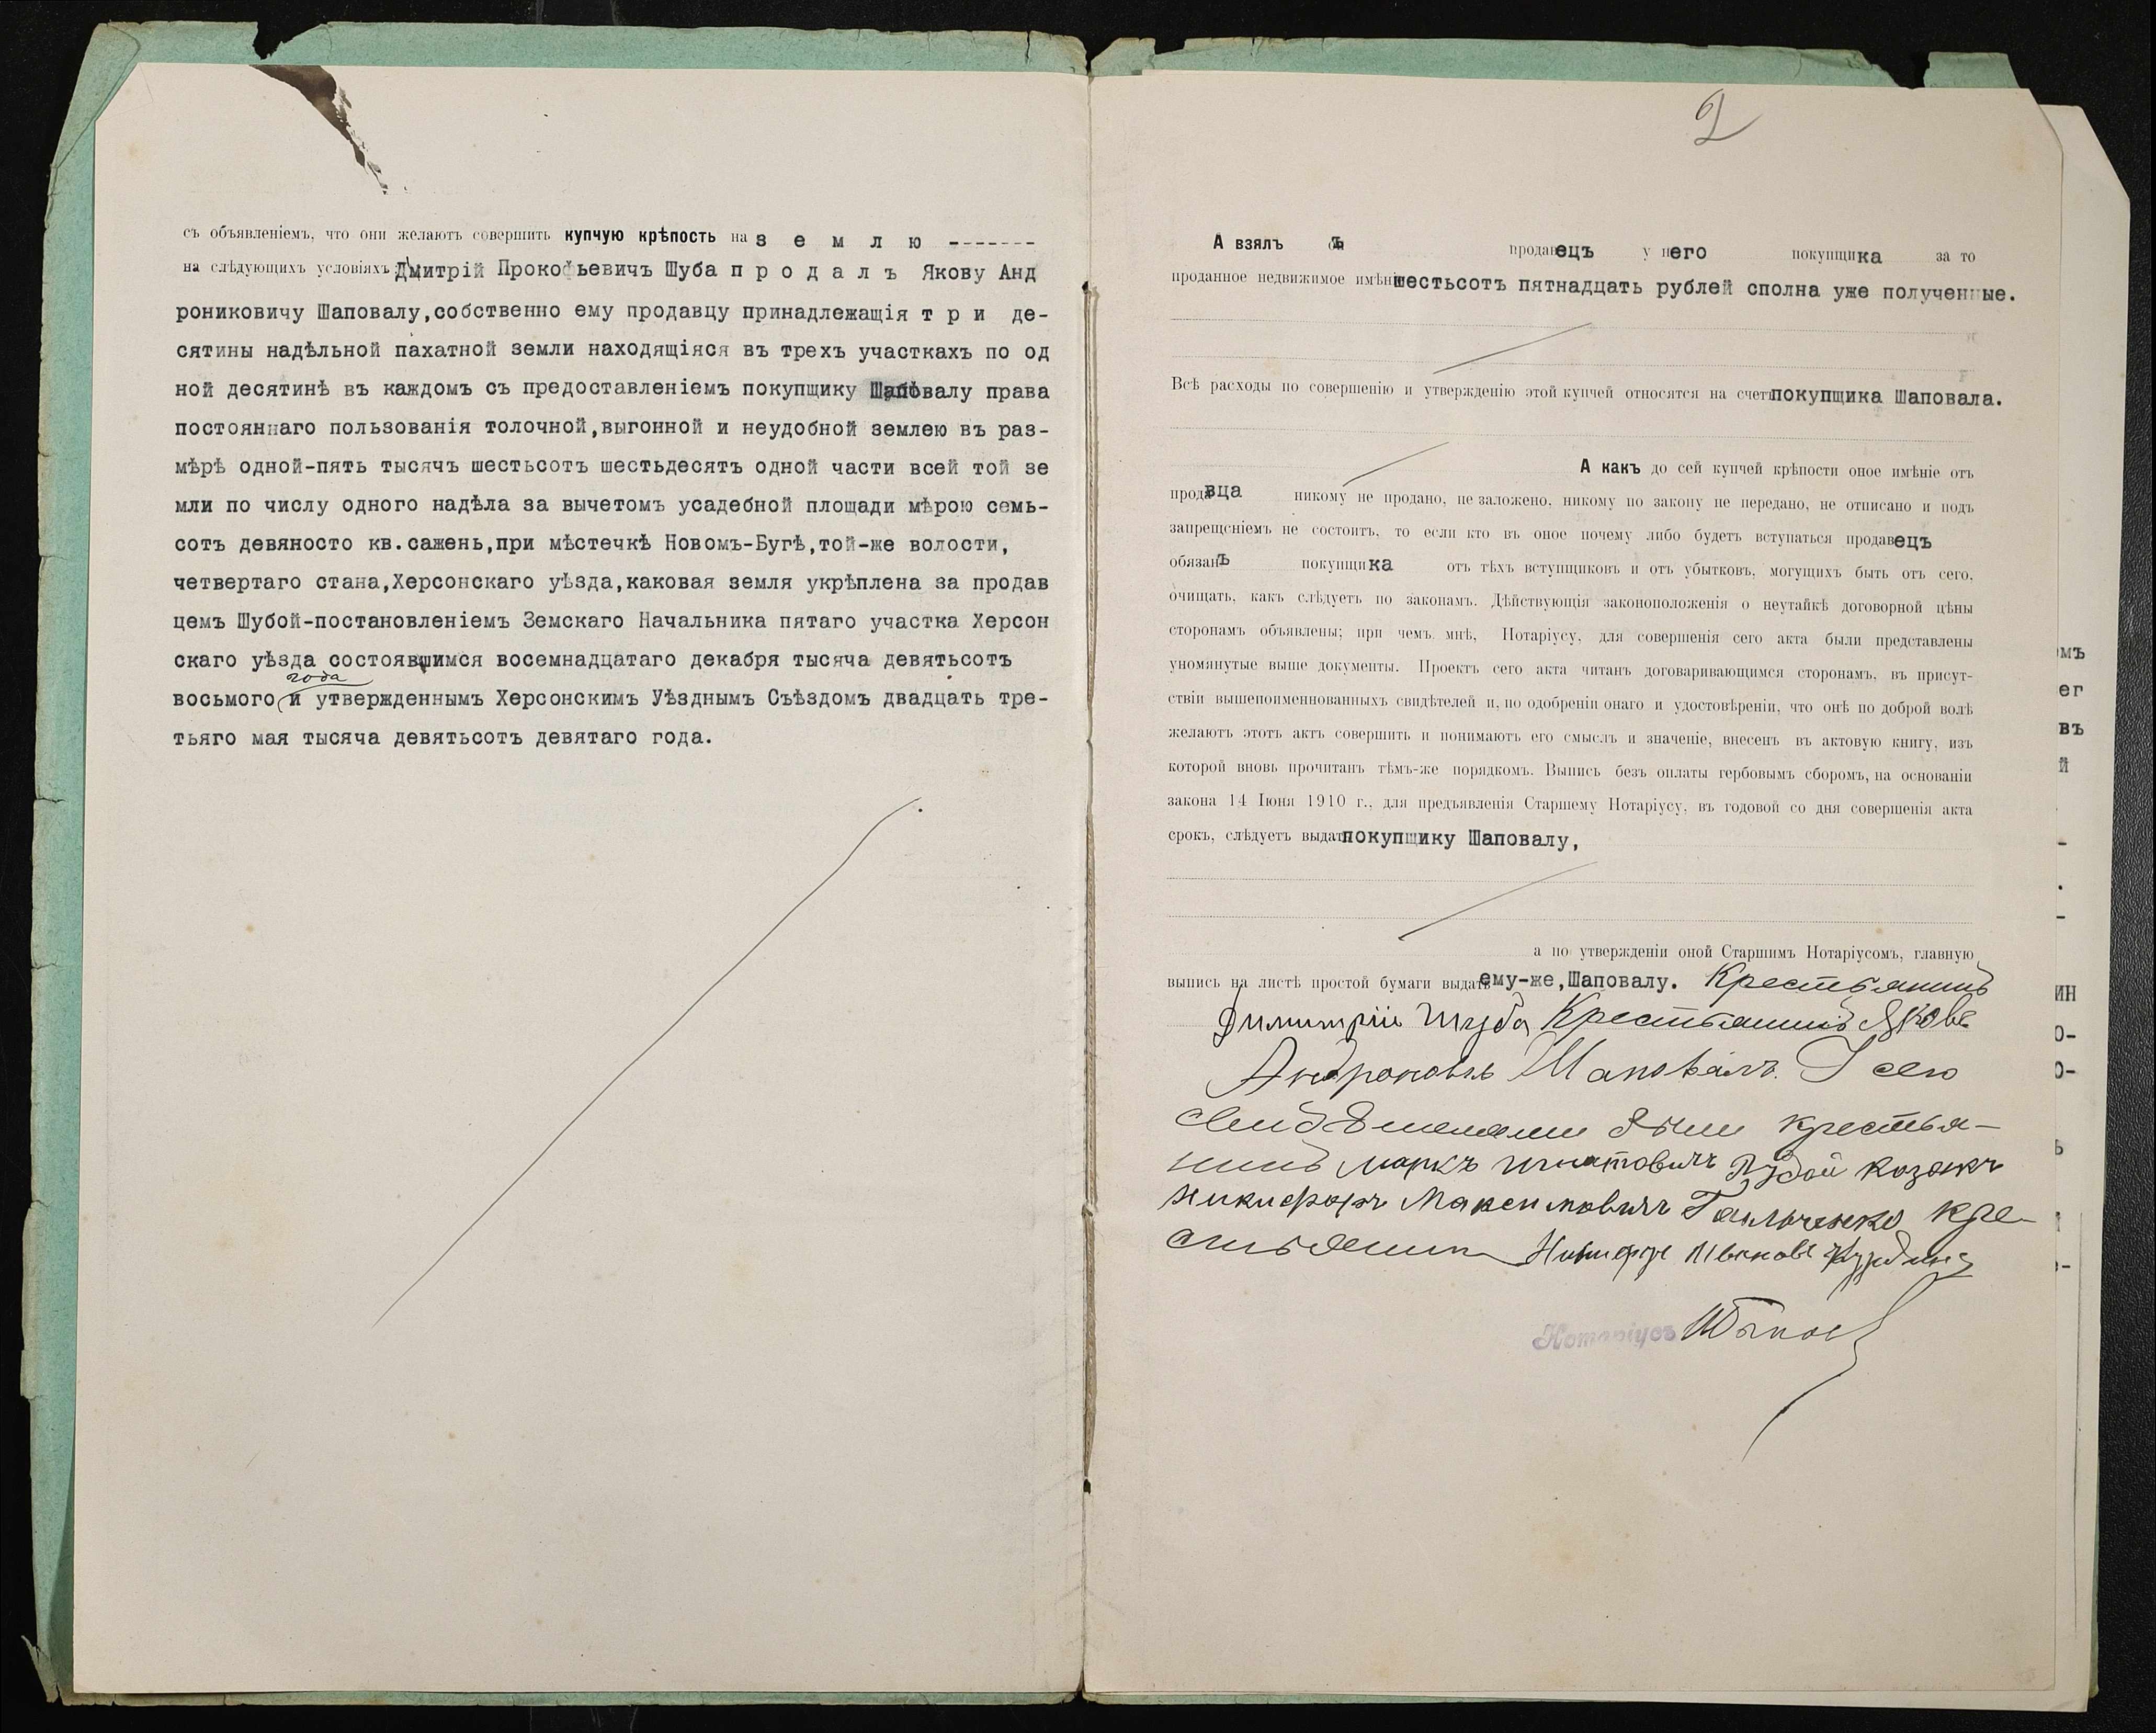 съ объявленіемъ, что они желаютъ совершить купчую крѣпость на з е м л ю -------
на слѣдующихъ условіяхъ: Дмитрій Прокофьевичъ Шуба п р о д а л ъ Якову Анд
рониковичу Шаповалу,собственно ему продавцу принадлежащія т р и де-
сятины надѣльной пахатной земли находящіяся въ трехъ участкахъ по од
ной десятинѣ въ каждомъ съ предоставленіемъ покупщику Шаповалу права
постояннаго пользованія толочной,выгонной и неудобной землею въ раз-
мѣрѣ одной-пять тысячъ шестьсотъ шестьдесятъ одной части всей той зе
мли по числу одного надѣла за вычетомъ усадебной площади мѣрою семь-
сотъ девяносто кв.сажень,при мѣстечкѣ Новомъ-Бугѣ,той-же волости,
четвертаго стана,Херсонскаго уѣзда,каковая земля укрѣплена за продав
цемъ Шубой-постановленіемъ Земскаго Начальника пятаго участка Херсон
скаго уѣзда состоявшимся восемнадцатаго декабря тысяча девятьсотъ
года
восьмого и утвержденнымъ Херсонскимъ Уѣзднымъ Съѣздомъ двадцать тре-
тьяго мая тысяча девятьсотъ девятаго года.
2
А взялъ онъ продавецъ у него покупщика за то
проданное недвижимое имѣніе шестьсотъ пятнадцать рублей сполна уже полученные.
Всѣ расходы по совершенію и утвержденію этой купчей относятся на счетъ покупщика Шаповала.
А какъ до сей купчей крѣпости оное имѣніе отъ
продавца никому не продано, не заложено, никому по закону не передано, не отписано и подъ
запрещеніемъ не состоитъ, то если кто въ оное почему либо будетъ вступаться продавецъ
обязанъ покупщика отъ тѣхъ вступщиковъ и отъ убытковъ, могущихъ быть отъ сего,
очищать, какъ слѣдуетъ по законамъ. Дѣйствующія законоположенія о неутайкѣ договорной цѣны
сторонамъ объявлены; при чемъ мнѣ, Нотаріусу, для совершенія сего акта были представлены
уномянутые выше документы. Проектъ сего акта читанъ договаривающимся сторонамъ, въ присут-
ствіи вышепоименнованныхъ свидѣтелей и, по одобреніи онаго и удостовѣреніи, что онѣ по доброй волѣ
желаютъ этотъ актъ совершить и понимаютъ его смыслъ и значеніе, внесенъ въ актовую книгу, изъ
которой вновь прочитанъ тѣмъ-же порядкомъ. Выпись безъ оплаты гербовымъ сборомъ, на основаніи
закона 14 Іюня 1910 г., для предъявленія Старшему Нотаріусу, въ годовой со дня совершенія акта
срокъ, слѣдуетъ выдать покупщику Шаповалу,
а по утвержденіи оной Старшимъ Нотаріусомъ, главную
выпись на листѣ простой бумаги выдать ему-же,Шаповалу. Крестьянинъ
Димитрій Шуба Крестьянинъ Яковъ
Андроновъ Шаповалъ. У сего
свидѣтелями были крестья-
нинъ Маркъ Игнатовичъ Рудой козакъ
Никифоръ Максимовичъ Гальченко кре-
стьянинъ Никифоръ
Нотаріусъ